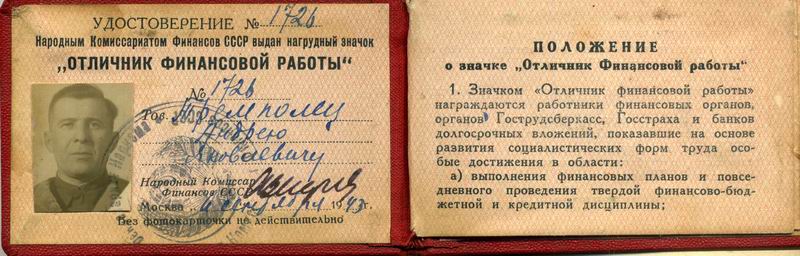 УДОСТОВЕРЕНИЕ № 1726
Народным Комиссариатом Финансов СССР выдан нагрудный значок
„ОТЛИЧНИК ФИНАНСОВОЙ РАБОТЫ“
№ 1726
Тов.
Андрею
Яковлевичу
Народный Комиссар
Финансов СССР
Москва 1943 г.
Без фотокарточки не действительно
ПОЛОЖЕНИЕ
о значке „Отличник Финансовой работы“
1. Значком «Отличник финансовой работы»
награждаются работники финансовых органов,
органов Гострудсберкасс, Госстраха и банков
долгосрочных вложений, показавшие на основе
развития социалистических форм труда осо-
бые достижения в области:
а) выполнения финансовых планов и повсе-
дневного проведения твердой финансово-бюд-
жетной и кредитной дисциплины;